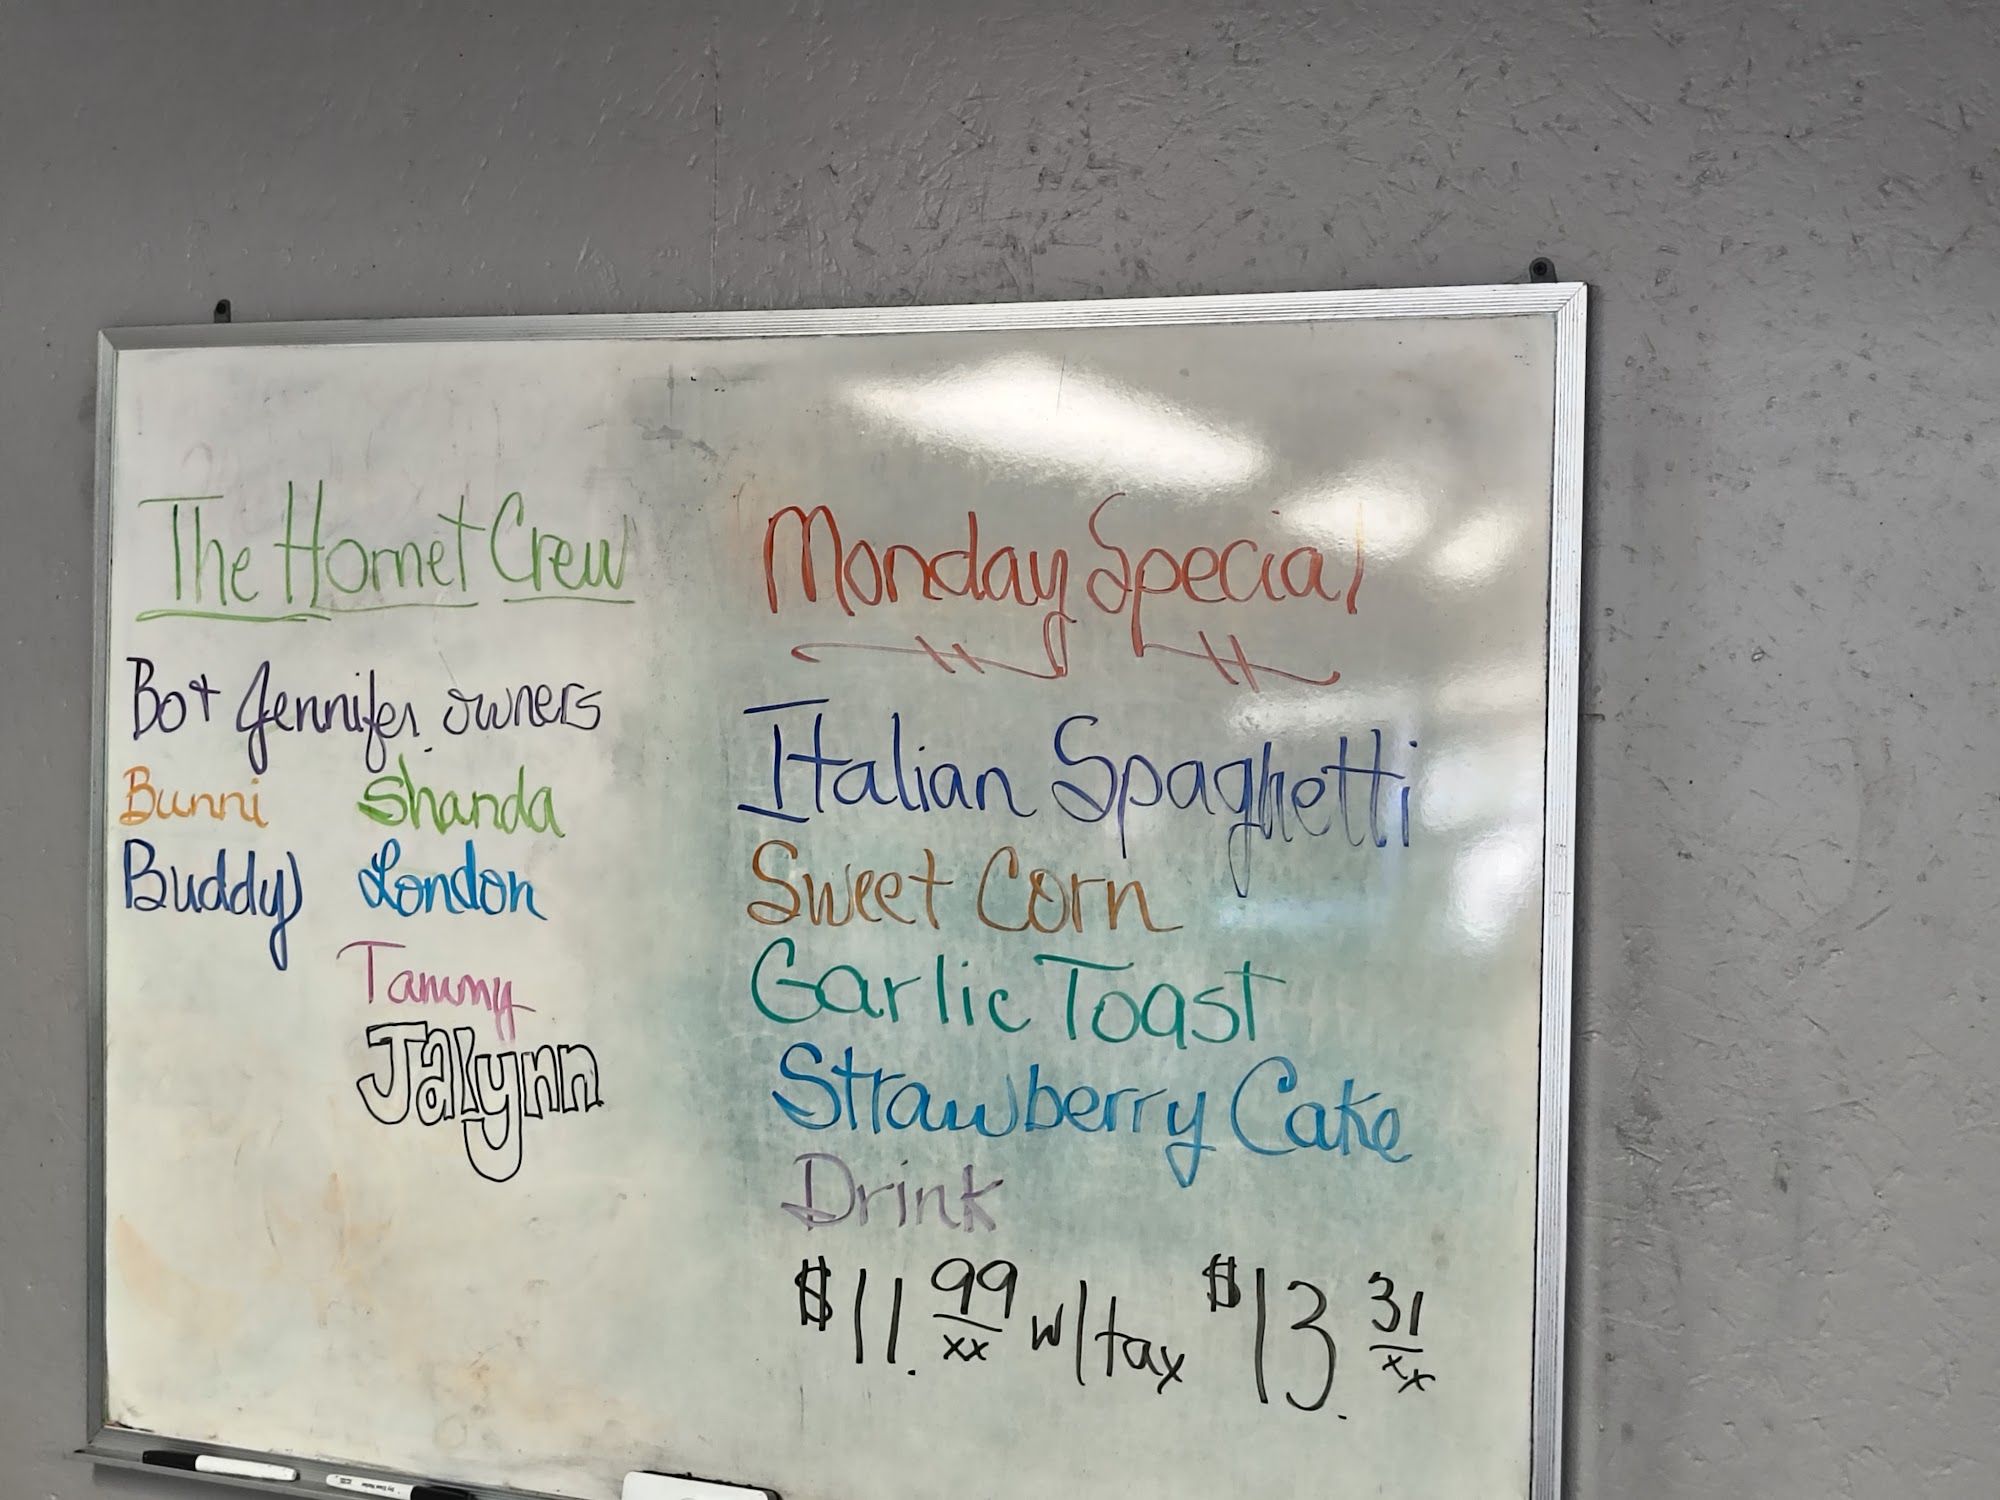 The Hornet Crew
Bo + Jennifer owners
Bunni Shanda
Buddy London
Tammy
Jalynn
Monday Special
Italian Spaghetti
Sweet Corn
Garlic Toast
Strawberry Cake
Drink
$11.99/xx w/tax $13.31/xx